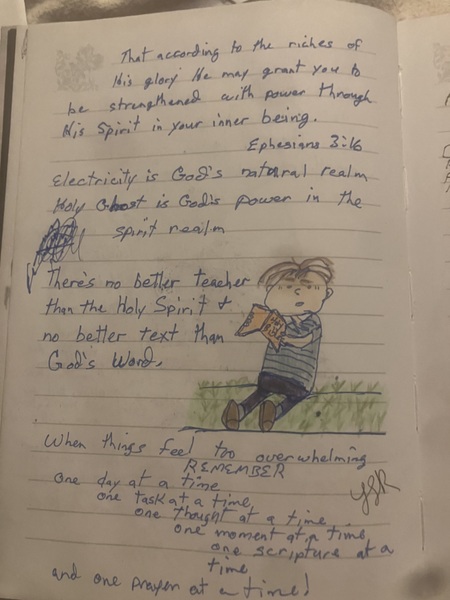 That according to the riches of
His glory He may grant you to
be strengthened with power through
His Spirit in your inner being.
Ephesians 3:16
Electricity is God's natural realm
Holy Ghost is God's power in the
spirit realm
There's no better teacher
than the Holy Spirit &
no better text than
God's Word.
When things feel too overwhelming
REMEMBER
One day at a time
one task at a time
one thought at a time
one moment at a time
one scripture at a
time
and one prayer at a time!